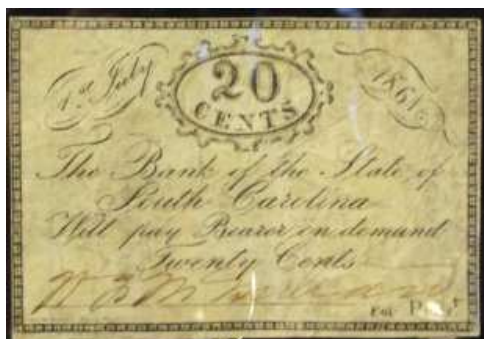 1st July 20 1861
CENTS
The Bank of the State of
South Carolina
Will pay Bearer on demand
Twenty Cents
For Pres.t